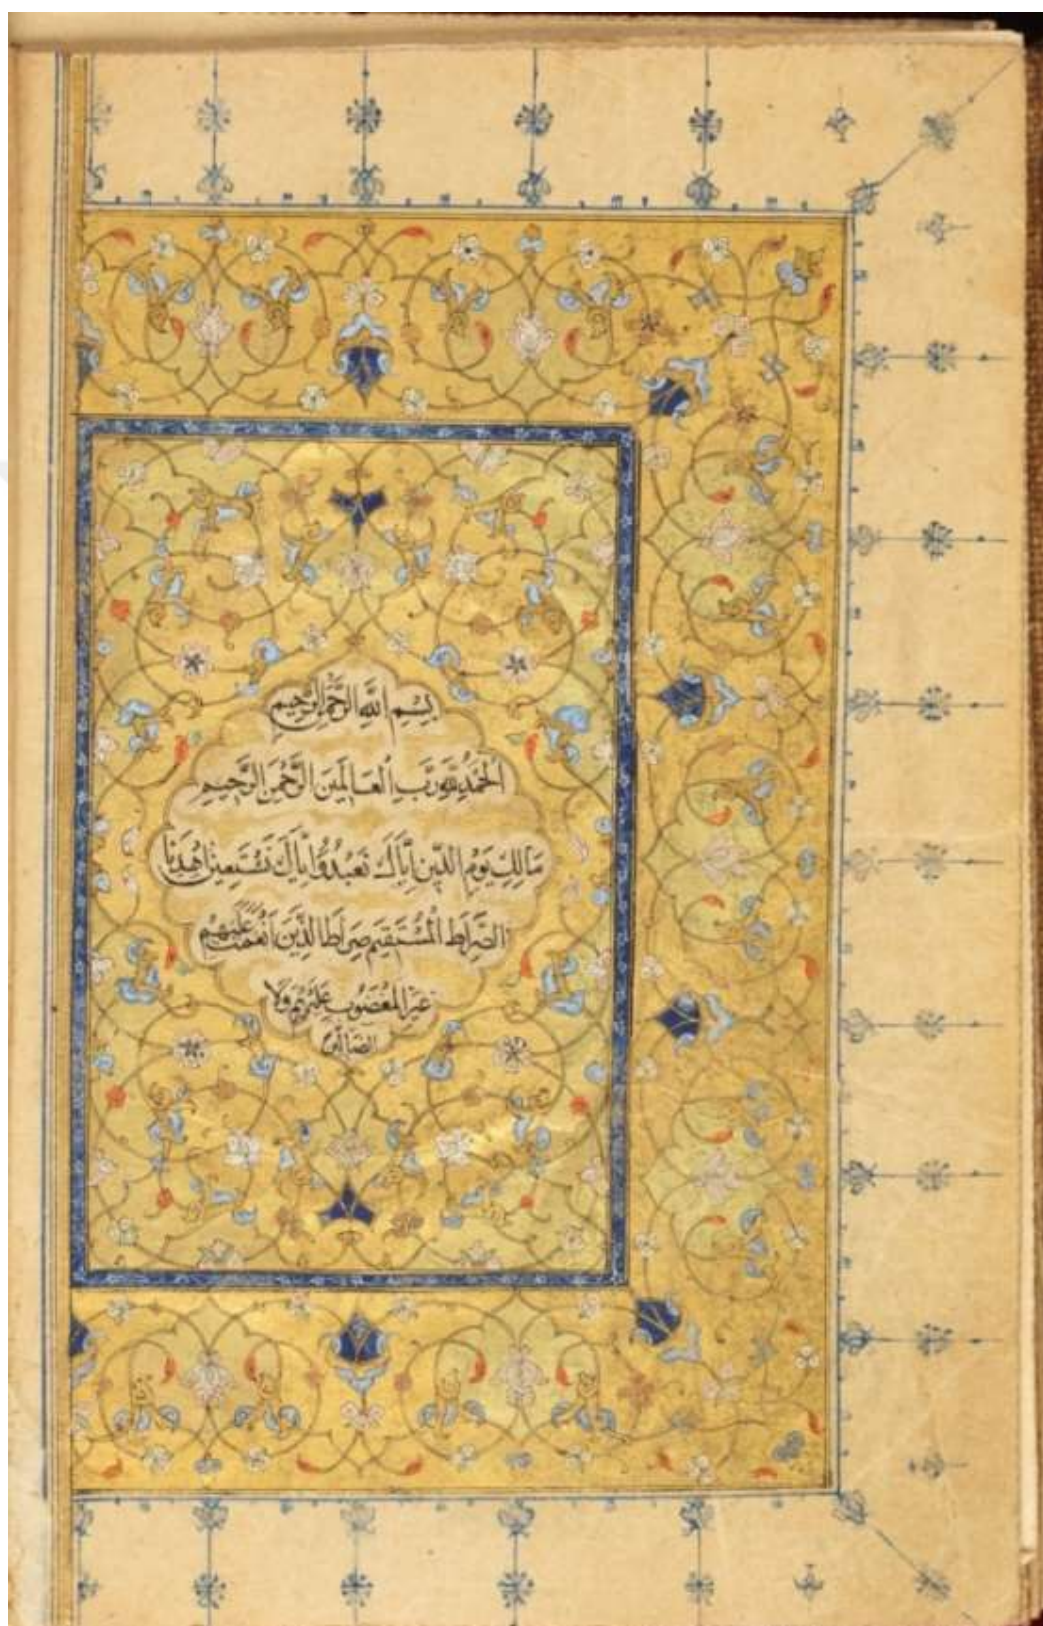 بِسْمِ اللَّهِ الرَّحْمٰنِ الرَّحِيمِ
اَلْحَمْدُ لِلَّهِ رَبِّ الْعَالَمِينَ الرَّحْمٰنِ الرَّحِيمِ
مَالِكِ يَوْمِ الدِّينِ اِيَّاكَ نَعْبُدُ وَاِيَّاكَ نَسْتَعِينُ اِهْدِنَا
الصِّرَاطَ الْمُسْتَقِيمَ صِرَاطَ الَّذِينَ اَنْعَمْتَ عَلَيْهِمْ
غَيْرِ الْمَغْضُوبِ عَلَيْهِمْ وَلَا
الضَّالِّينَ